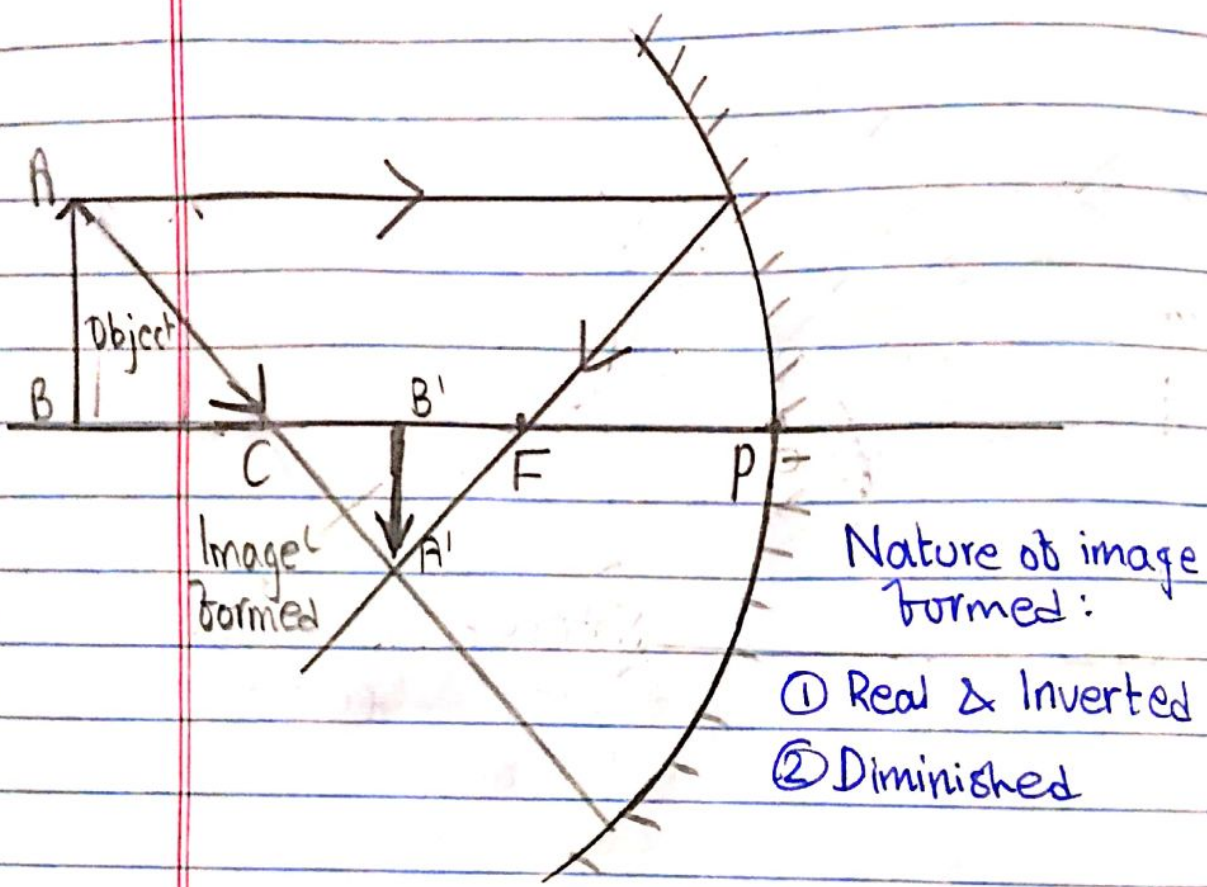 A
Object
B
B'
C
F
P
Image
formed
A'
Nature of image
formed:
① Real & Inverted
② Diminished